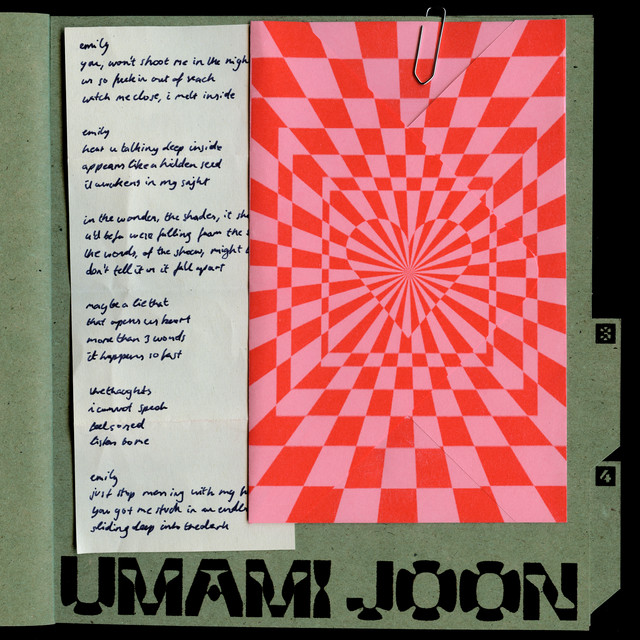 emily
you, won't shoot me in the nigh
ur so fuckin out of reach
watch me close, i melt inside

emily
hear u talking deep inside
appears like a hidden seed
it awakens in my sight

in the wonder, the shades, it sh
u'll before were falling from the s
the words, of the shows, might b
don't tell it or it fall apart

maybe a lie that
that opens ur heart
more than 3 words
it happens so fast

the thoughts
i cannot speak
feel so red
listen to me

emily
just stop messing with my h
you got me stuck in an under
sliding deep into the dark
8
4
UMAMI JOON